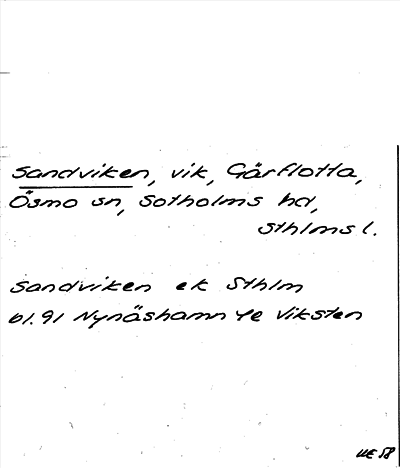 Sandviken, vik, Gärflotta,
Ösmo sn, Sotholms hd,
Sthlms l.
Sandviken ek Sthlm
bl. 91 Nynäshamn Ye Viksten
UE 58